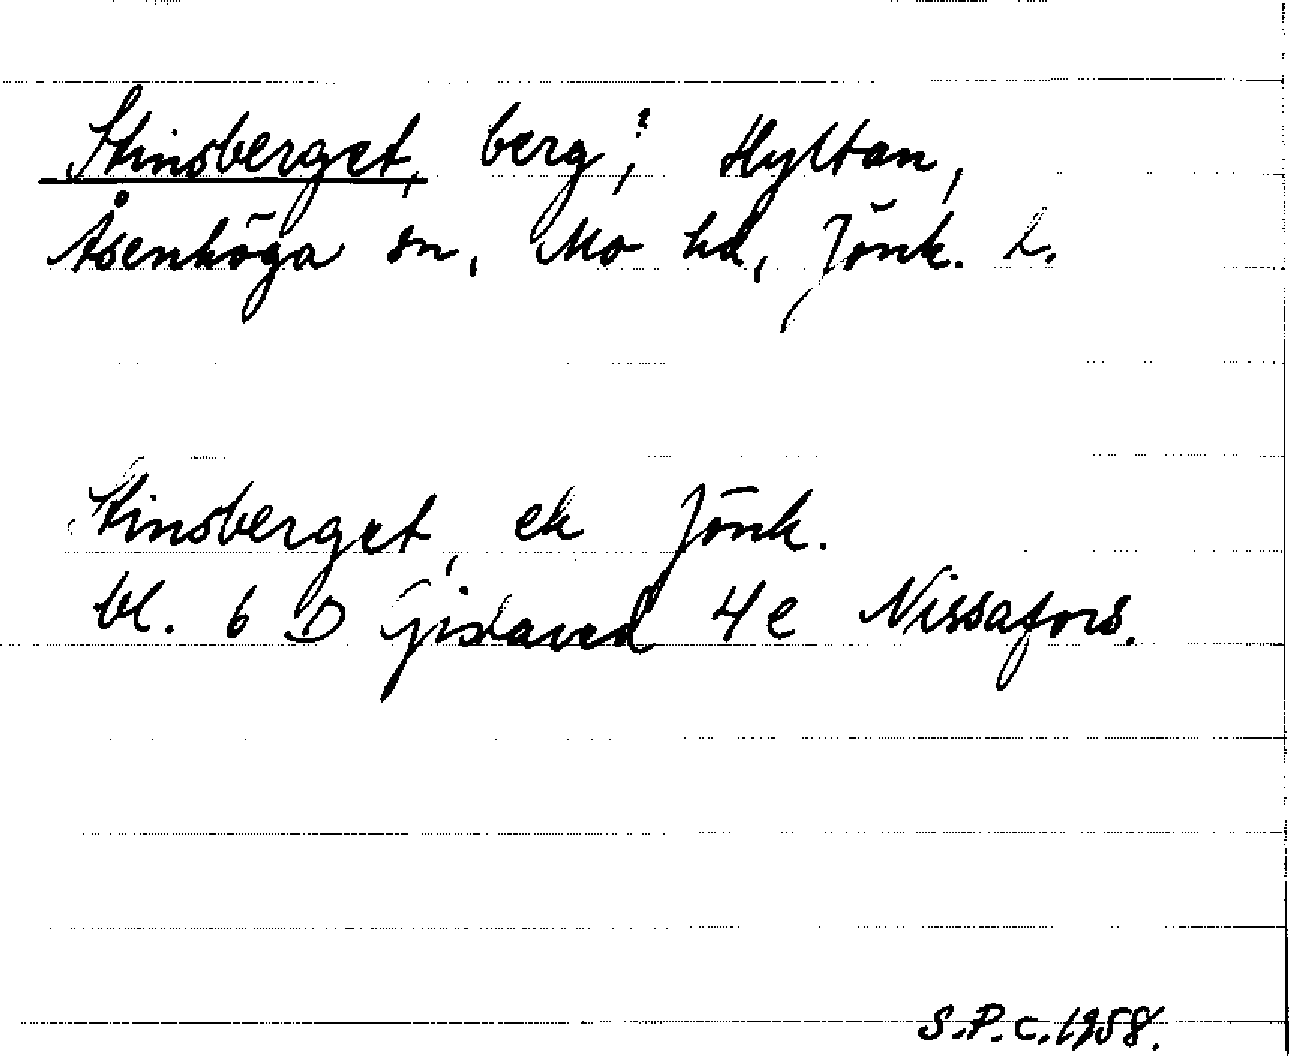 Stinsberget, berg?, Hyltan,
Åsenhöga sn, Mo hd, Jönk. l.
Stinsberget, ek Jönk.
bl. 6 D Gislaved 4e Nissafors.
S.P.C. 1958.